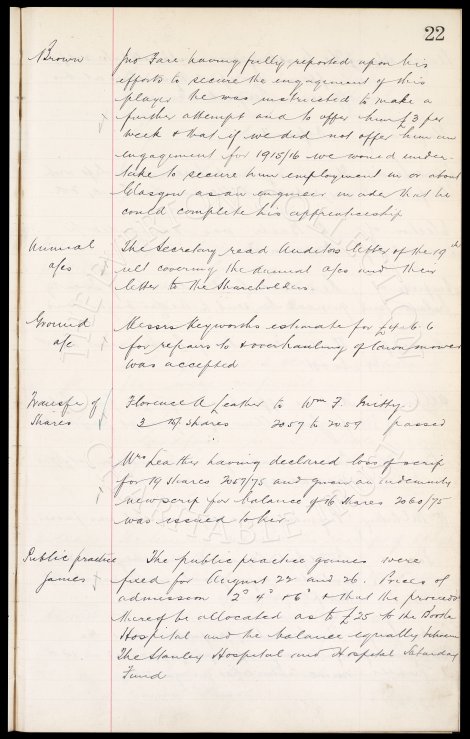 22
Brown Jno Fare having fully reported upon his
efforts to secure the engagement of this
player he was instructed to make a
further attempt and to offer him £3 per
week & that if we did not offer him an
engagement for 1915/16 we would under-
take to secure him employment in or about
Glasgow as an engineer in order that he
could complete his apprenticeship
Annual The Secretary read Auditors letter of the 19th
a/cs ult covering the annual a/cs and their
letter to the Shareholders.
Ground Messrs Keyworths estimate for £4. 6. 6
a/c for repairs to & overhauling of lawn mower
was accepted
Transfer of Florence A Leather to Wm F.
Shares 3 Shares 2057 to 2059 passed
Mrs Leather having declared loss of scrip
for 19 Shares 2057/75 and given an indemnity
new scrip for balance of 16 Shares 2060/75
was issued to her
Public practice The public practice games were
games fixed for August 22 and 26. Prices of
admission 2d 4d & 6d & that the proceeds
thereof be allocated as to £25 to the Bootle
Hospital and the balance equally between
The Stanley Hospital and Hospital Saturday
Fund